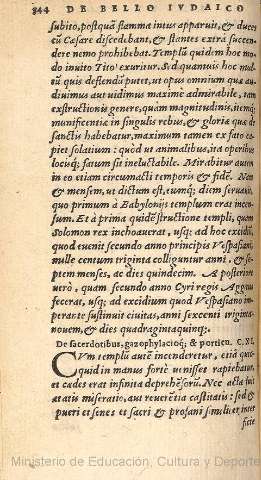 344 DE BELLO IVDAICO
subito, postquã flamma intus apparuit, & duces
cũ Cæsare discedebant, & stantes extra succen-
dere nemo prohibebat. Templũ quidem hoc mo-
do inuito Tito exuritur. Sed quamuis hoc mul-
tũ quis deflendũ putet, ut opus omnium quæ au-
diuimus aut uidimus maxime admirabile, tam
exstructionis genere, quàm magnitudinis, itemq;
munificentia in singulis rebus, & gloria quæ de
sanctis habebatur, maximum tamen ex fato ca-
piet solatium: quòd ut animalibus, ita operibus
locisq; fatum sit ineluctabile. Mirabitur autem
in eo etiam circumacti temporis & fidẽ. Nam
& mensem, ut dictum est, eumq; diem seruauit,
quo primum à Babylonijs templum erat incen-
sum. Et à prima quidẽ structione templi, quam
Solomon rex inchoauerat, usq; ad hoc exidiũ,
quod euenit secundo anno principis Vespasiani,
mille centum triginta colliguntur anni, & se-
ptem menses, ac dies quindecim. A posteriore
uerò, quam secundo anno Cyri regis Aggæus
fecerat, usq; ad excidium quod Vespasiano im-
perante sustinuit ciuitas, anni sexcenti triginta-
nouem, & dies quadragintaquinq;.
De sacerdotibus, gazophylacioq;, & porticu. C. XI.
CVm templũ autẽ incenderetur, etiã quic-
quid in manus fortè uenisset rapiebatur,
et cædes erat infinita deprehẽsorũ. Nec ætatis fuit
ulla miseratio, aut reuerẽtia castitatis: sed &
pueri et senes et sacri & profani similiter inter
ficie
Ministerio de Educación, Cultura y Deporte